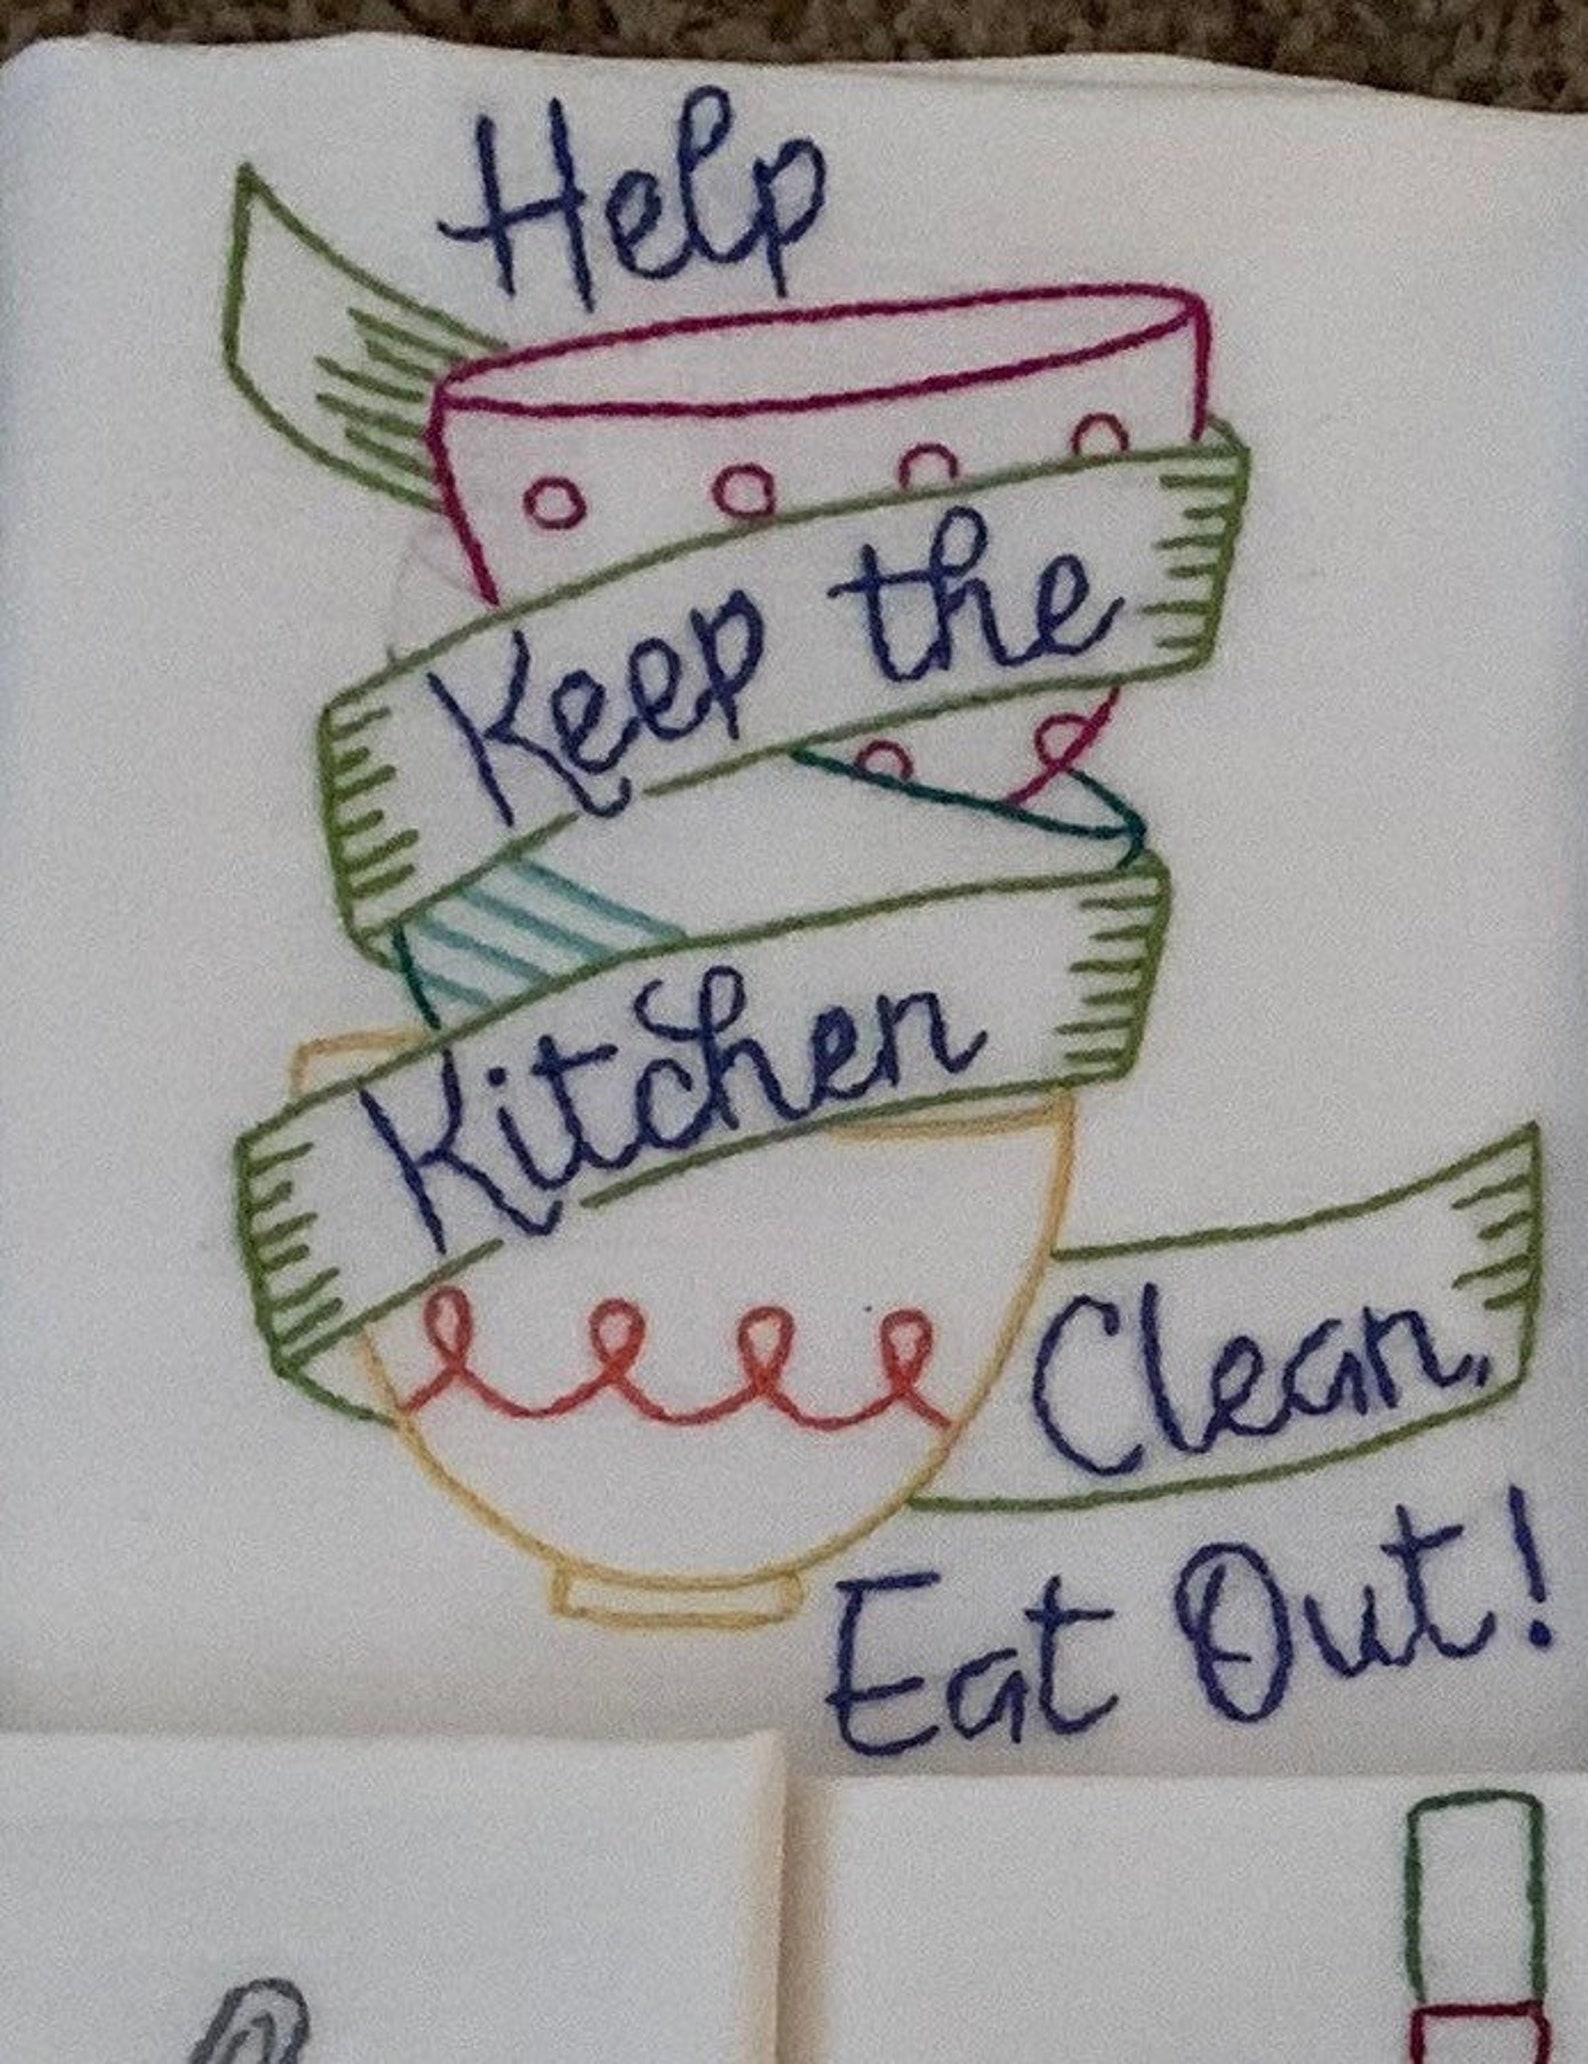 Help
Keep the
Kitchen
Clean,
Eat Out!